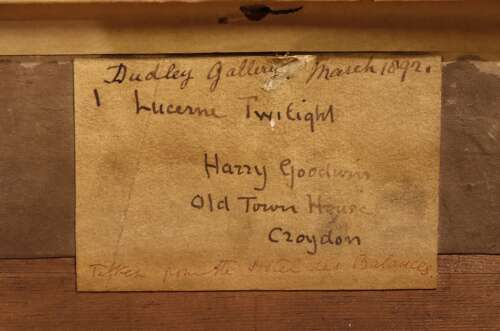 Dudley Gallery. March 1892.
1 Lucerne Twilight
Harry Goodwin
Old Town House
Croydon
Taken from the Hotel des Balances.